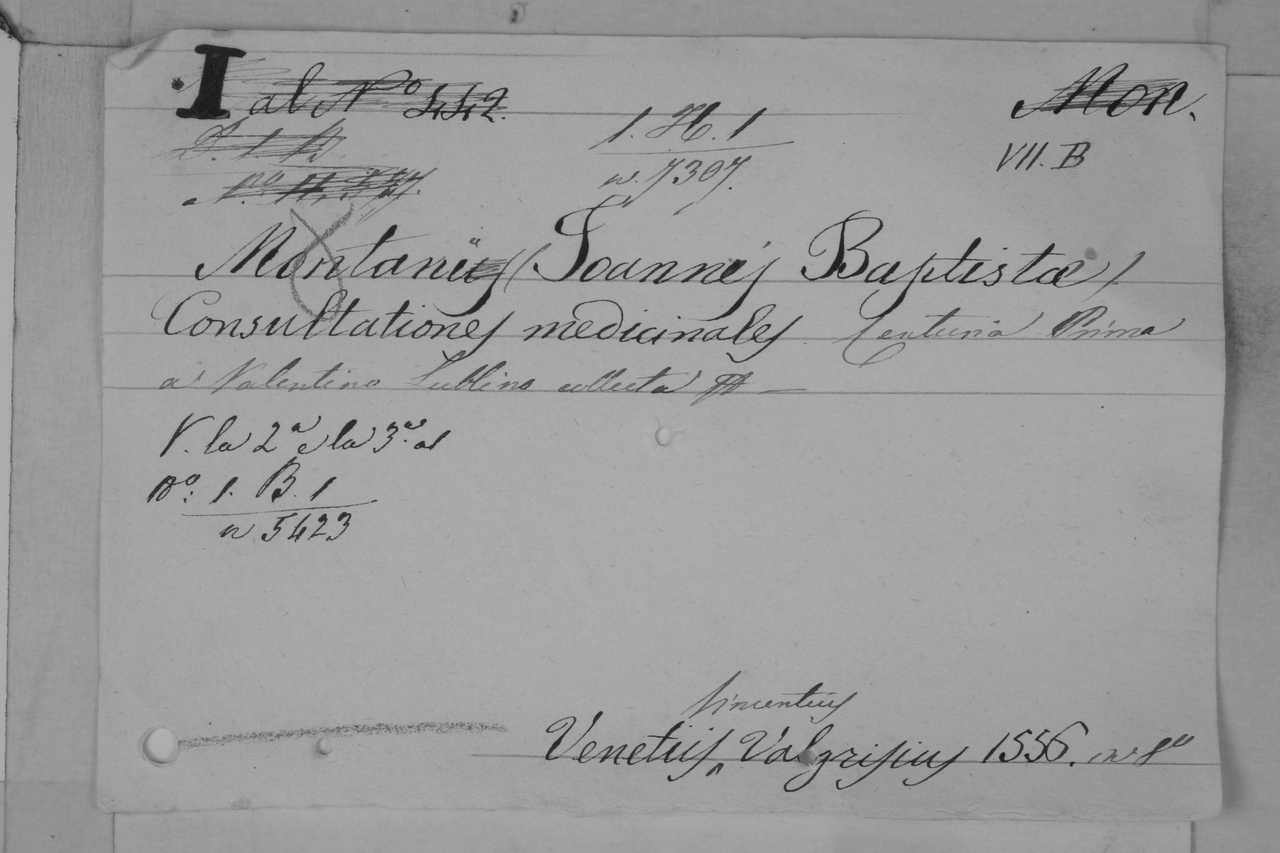 I al N° 442. 1. H. 1 Mon.
n. 7307. VII. B
Montanus (Joannes Baptistae).
Consultationes medicinales. Centuria Prima
a Valentino Lublino collecta
V. la 2a e la 3a al
No: 1. B. 1
n 5423
Vincentius
Venetiis, Valgrisius 1556. in 8°